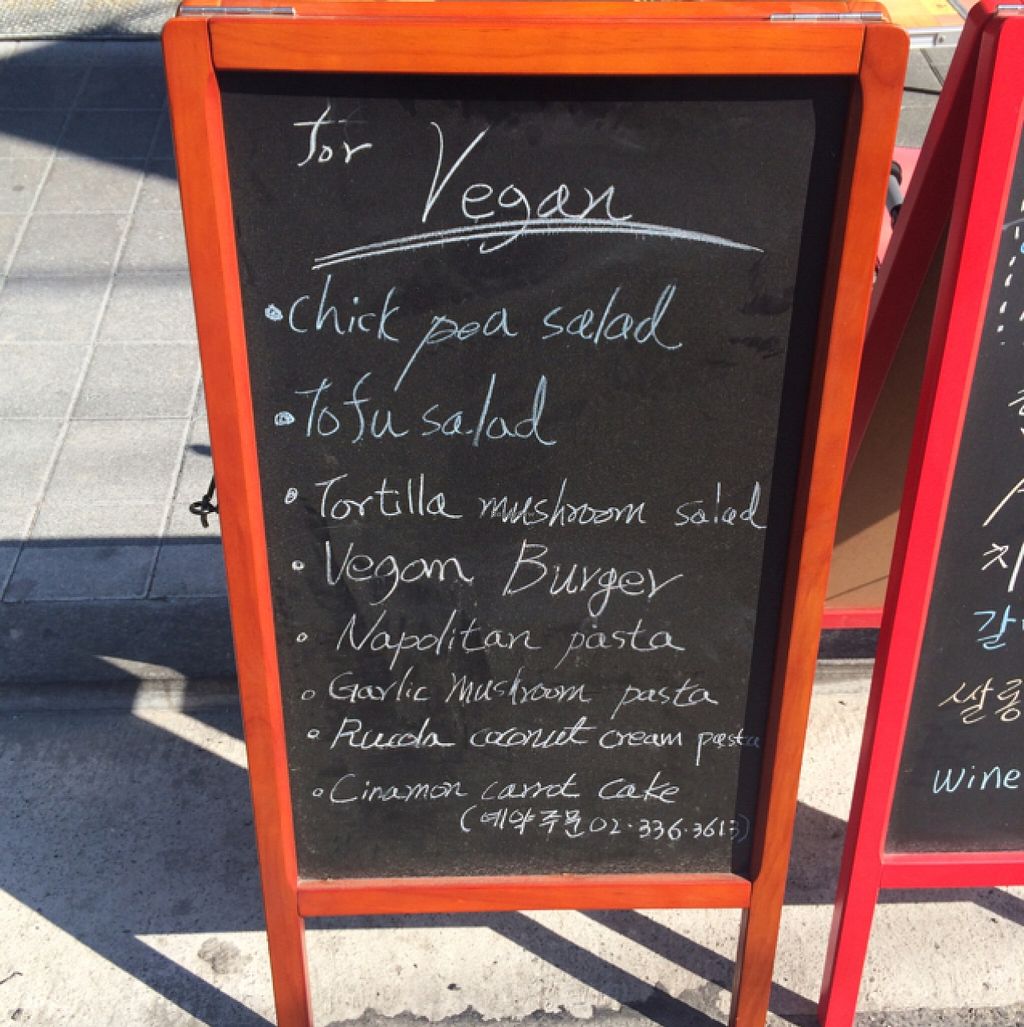 for
Vegan
• chick pea salad
• Tofu salad
• Tortilla mushroom salad
• Vegan Burger
• Napolitan pasta
• Garlic mushroom pasta
• Rucola coconut cream pasta
• Cinamon carrot cake
(예약주문 02.336.3613)
wine